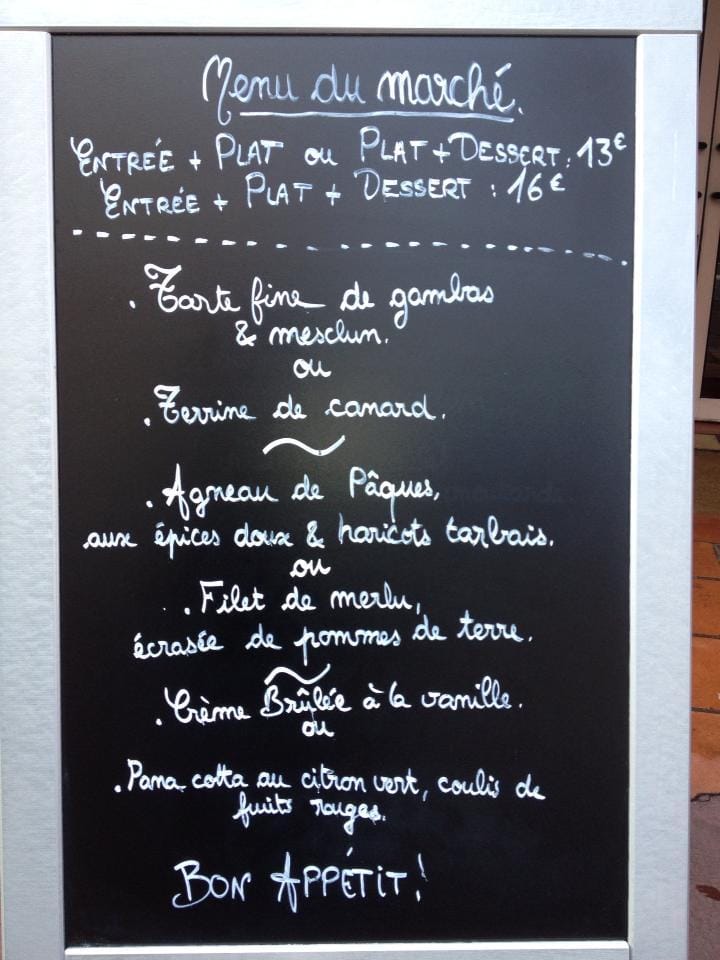 Menu du marché.
ENTRÉE + PLAT ou PLAT + DESSERT : 13€
ENTRÉE + PLAT + DESSERT : 16€
. Tarte fine de gambas
& mesclun.
ou
. Terrine de canard.
. Agneau de Pâques,
aux épices doux & haricots tarbais.
ou
. Filet de merlu,
écrasée de pommes de terre.
. Crème Brûlée à la vanille.
ou
. Pana cotta au citron vert, coulis de
fruits rouges.
BON APPÉTIT !